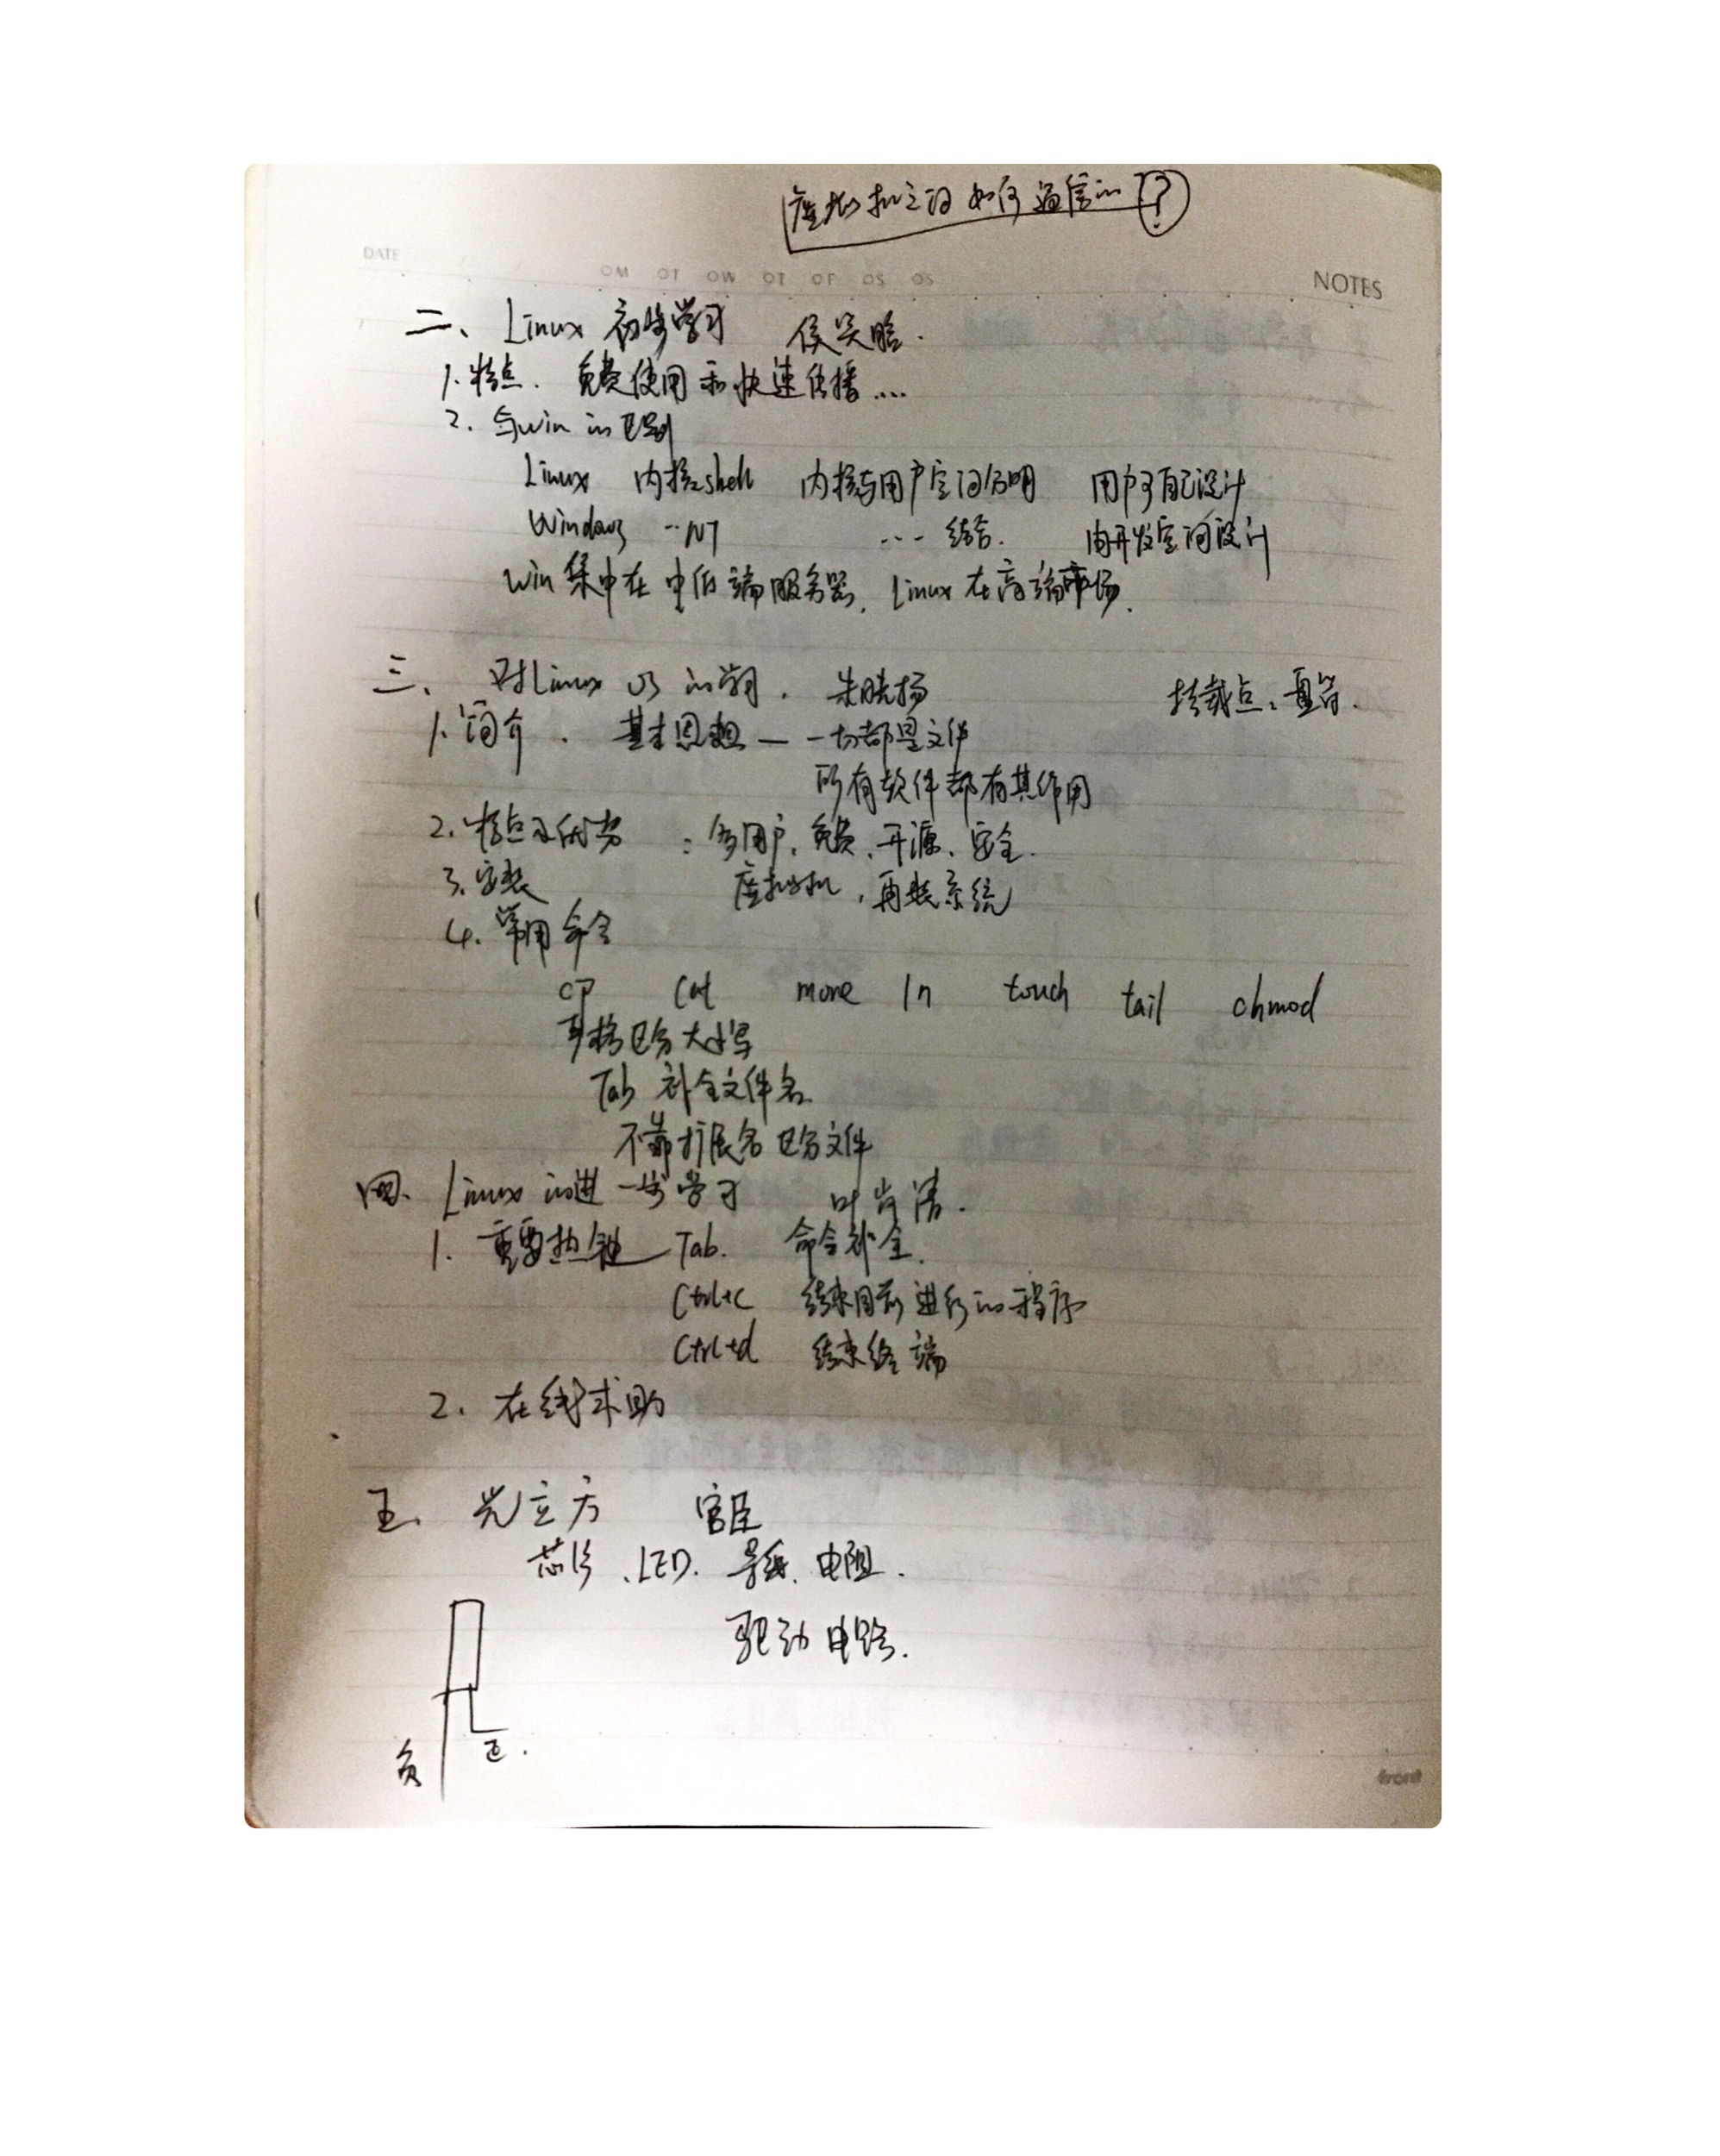 虚拟机之间如何通信的?
DATE
OM OT OW OT OF OS OS
NOTES
二、Linux 初步学习 侯笑晗.
1.特点. 免费使用和快速传播....
2. 与win的区别
Linux 内核shell 内核与用户空间分明 用户可自己设计
Windows --NT --- 结合. 由开发空间设计
Win集中在中低端服务器, Linux在高端市场.
三、对Linux OS的学习. 朱晓扬 挂载点:盘符.
1.简介. 基本思想 — 一切都是文件
所有软件都有其作用
2.特点及优势 : 多用户、免费、开源、安全.
3.安装 虚拟机,再装系统
4.常用命令
cp cat more ln touch tail chmod
严格区分大小写
Tab 补全文件名
不靠扩展名区分文件
四、Linux的进一步学习 叶肖
1. 重要热键 Tab. 命令补全.
Ctrl+c 结束目前进行的程序
Ctrl+d 结束终端
2. 在线求助
五、光立方 官臣
芯片、LED. 导线、电阻.
驱动电路.
负 正.
front